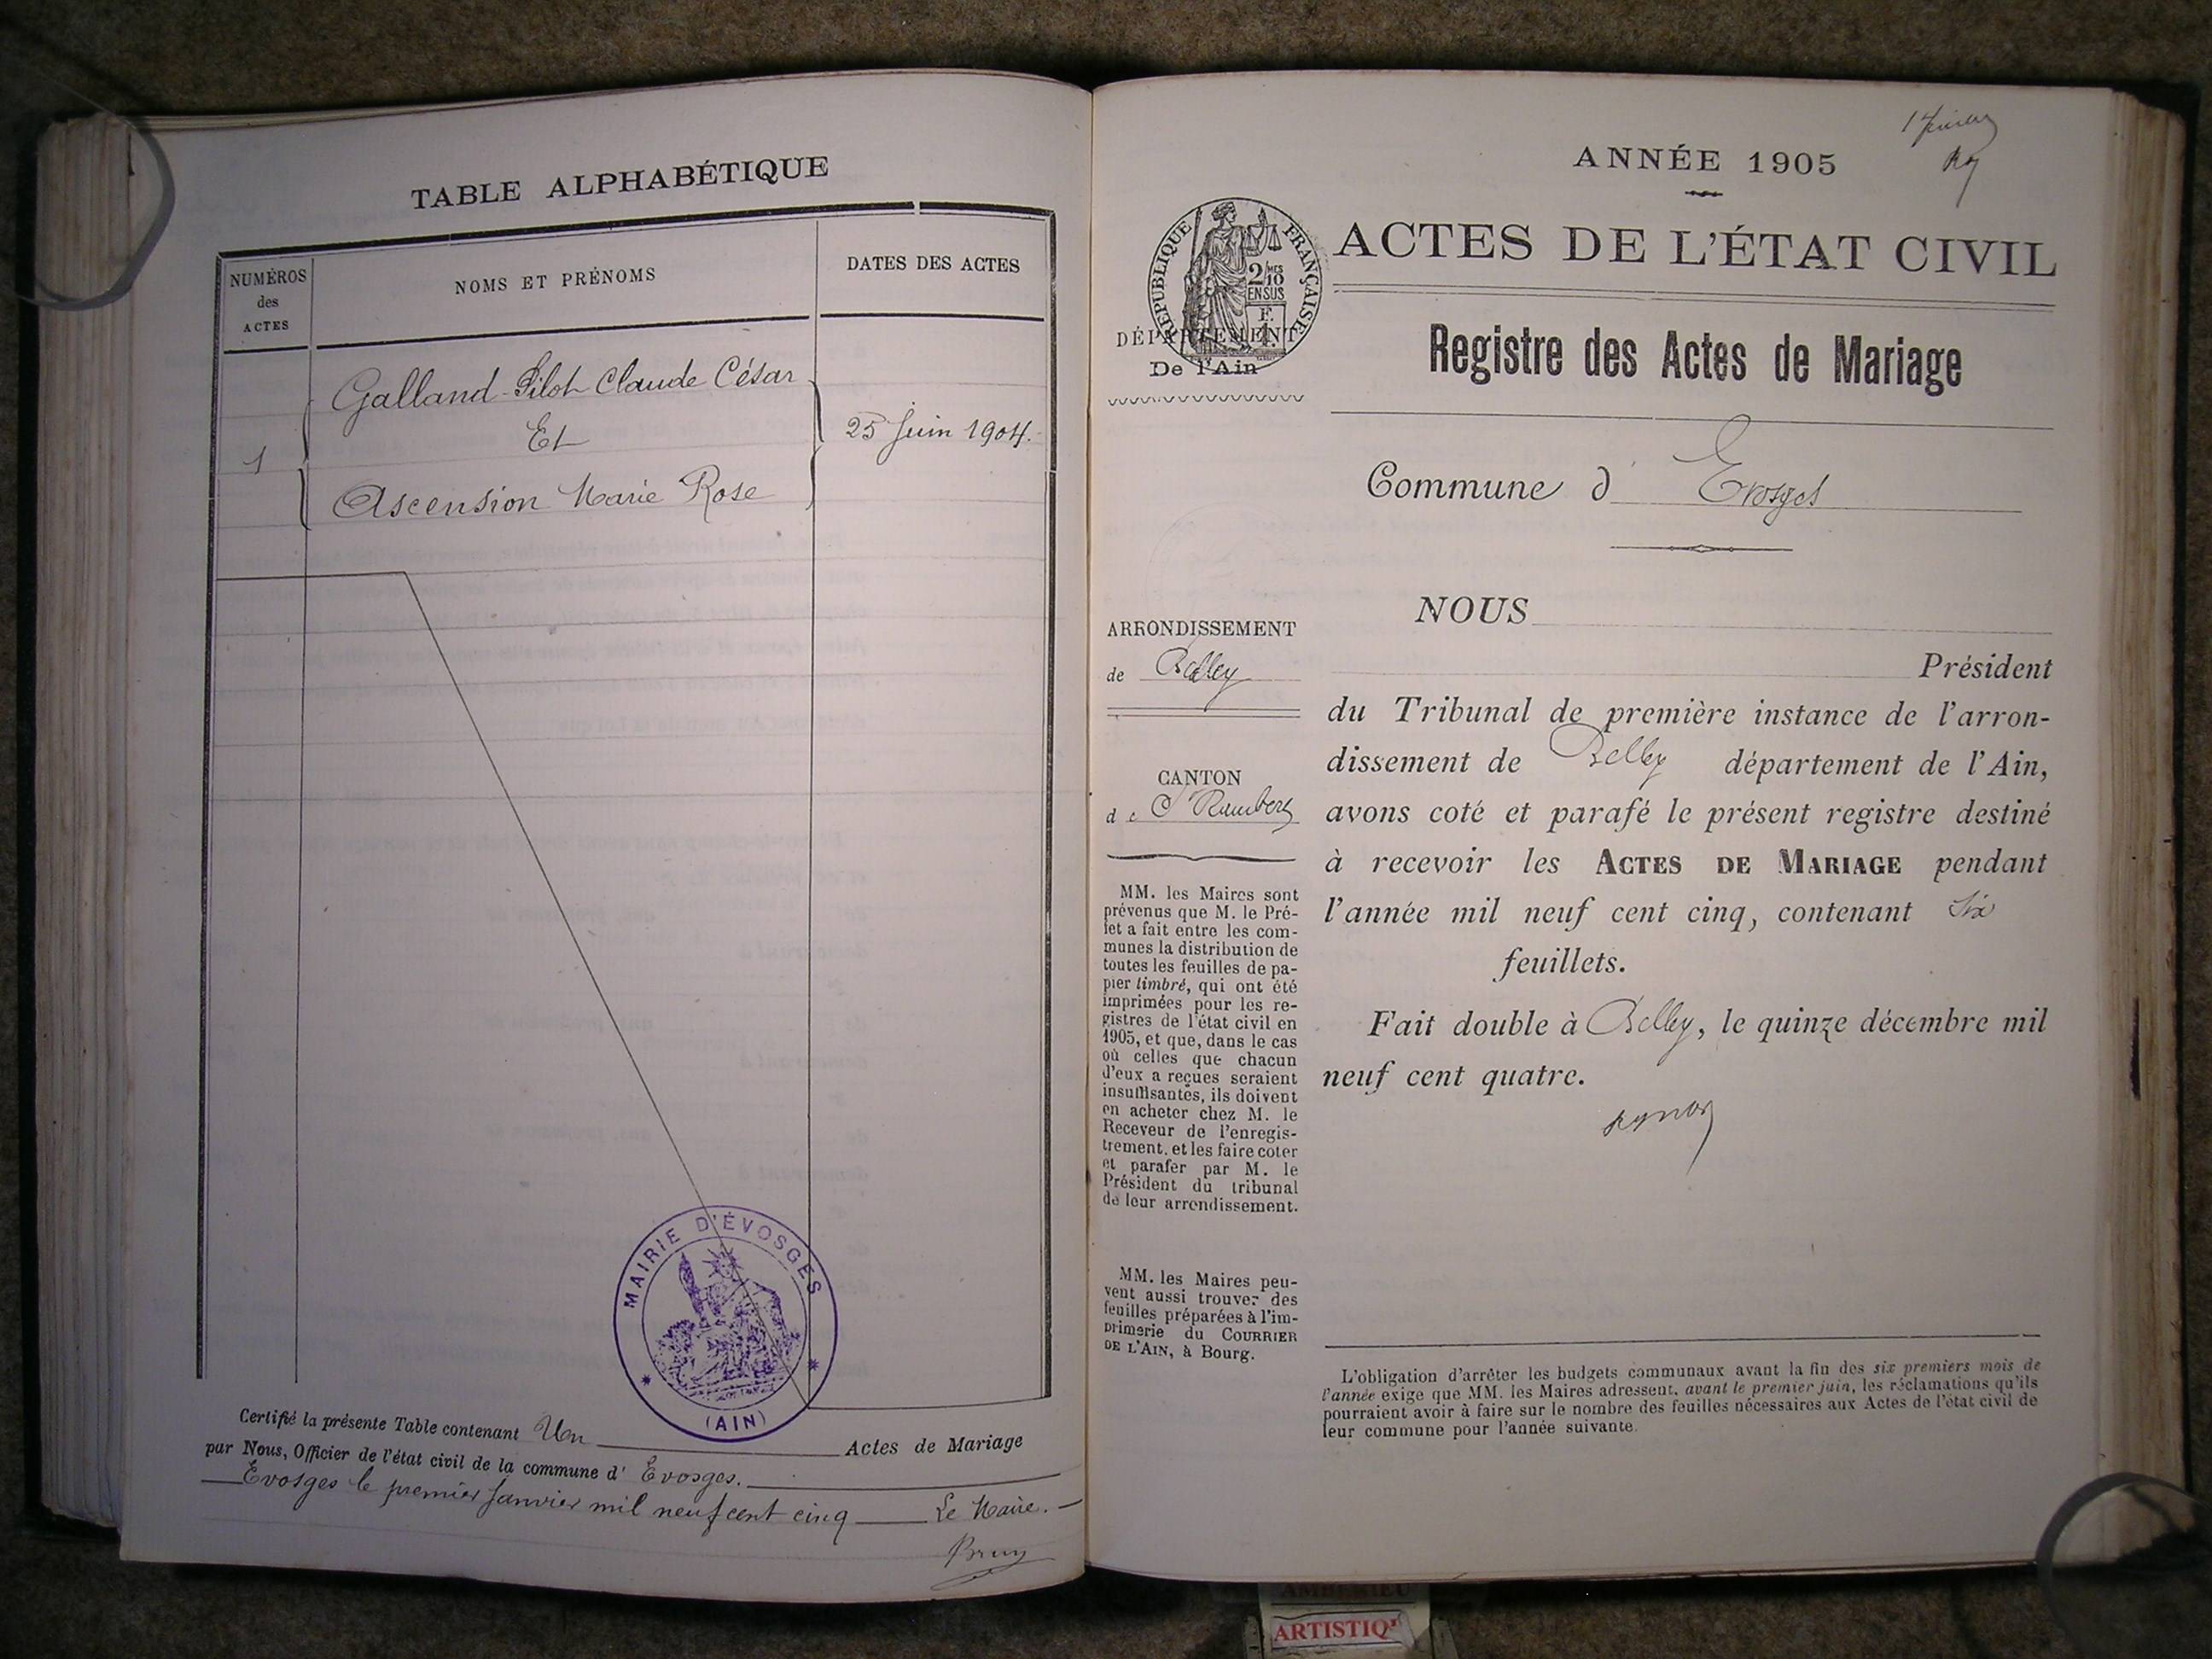 TABLE ALPHABÉTIQUE
NUMÉROS
des
ACTES
NOMS ET PRÉNOMS
DATES DES ACTES
Galland-Pilot Claude César
Et
1
25 Juin 1904.
Ascension Marie Rose
MAIRIE D'ÉVOSGES
(AIN)
Certifié la présente Table contenant Un Actes de Mariage
par Nous, Officier de l'état civil de la commune d' Evosges.
Evosges le premier Janvier mil neuf cent cinq Le Maire.
ANNÉE 1905
ACTES DE L'ÉTAT CIVIL
RÉPUBLIQUE FRANÇAISE
2/10 MES
EN SUS
F.
1.
DÉPARTEMENT
De l'Ain
Registre des Actes de Mariage
Commune d' Evosges
ARRONDISSEMENT
de Belley
CANTON
de St Rambert
MM. les Maires sont
prévenus que M. le Pré-
fet a fait entre les com-
munes la distribution de
toutes les feuilles de pa-
pier timbré, qui ont été
imprimées pour les re-
gistres de l'état civil en
1905, et que, dans le cas
où celles que chacun
d'eux a reçues seraient
insuffisantes, ils doivent
en acheter chez M. le
Receveur de l'enregis-
trement. et les faire coter
et parafer par M. le
Président du tribunal
de leur arrondissement.
MM. les Maires peu-
vent aussi trouver des
feuilles préparées à l'im-
primerie du COURRIER
DE L'AIN, à Bourg.
NOUS
Président
du Tribunal de première instance de l'arron-
dissement de Belley département de l'Ain,
avons coté et parafé le présent registre destiné
à recevoir les ACTES DE MARIAGE pendant
l'année mil neuf cent cinq, contenant Six
feuillets.
Fait double à Belley, le quinze décembre mil
neuf cent quatre.
L'obligation d'arrêter les budgets communaux avant la fin des six premiers mois de
l'année exige que MM. les Maires adressent, avant le premier juin, les réclamations qu'ils
pourraient avoir à faire sur le nombre des feuilles nécessaires aux Actes de l'état civil de
leur commune pour l'année suivante.
AMBERIEU
ARTISTIQ